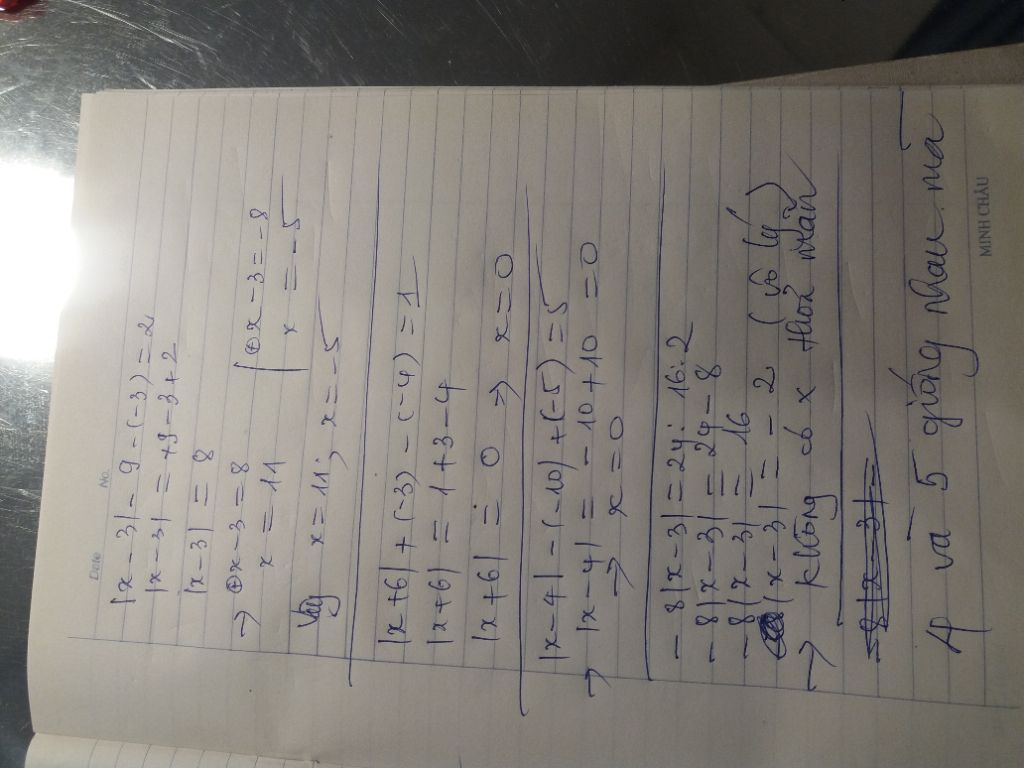 Date No.
|x - 3| - 9 - (-3) = 2
|x - 3| = +9 - 3 + 2
|x - 3| = 8
→ ⊕ x - 3 = 8 | ⊕ x - 3 = -8
x = 11 | x = -5
Vậy x = 11 ; x = -5
|x + 6| + (-3) - (-4) = 1
|x + 6| = 1 + 3 - 4
|x + 6| = 0 => x = 0
|x - 4| - (-10) + (-5) = 5
→ |x - 4| = -10 + 10 = 0
→ x = 0
- 8|x - 3| = 24 : 16 : 2
- 8|x - 3| = 24 - 8
- 8|x - 3| = 16
|x - 3| = - 2 (vô lý)
→ không có x thoả mãn
- 8|x - 3| =
4 và 5 giống nhau mà
MINH CHÂU